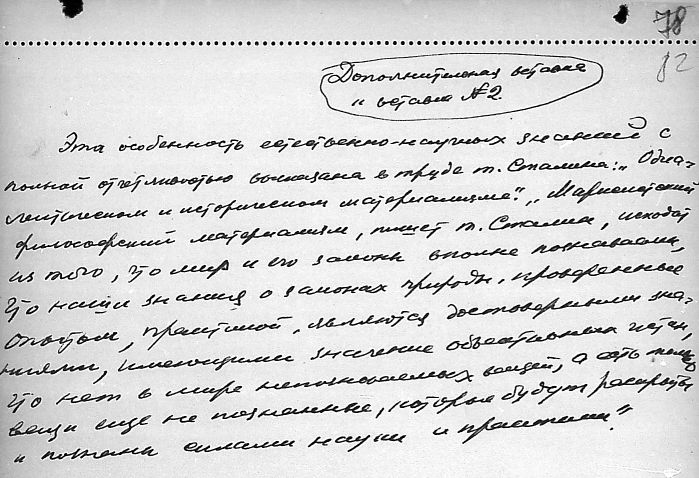 78
82
Дополнительная вставка
к вставке №2.
Эта особенность естественно-научных знаний с
полной отчетливостью высказана в труде т. Сталина: „О диа-
лектическом и историческом материализме". „Марксистский
философский материализм, пишет т. Сталин, исходит
из того, что мир и его законы вполне познаваемы,
что наши знания о законах природы, проверенные
опытом, практикой, являются достоверными зна-
ниями, имеющими значение объективных истин,
что нет в мире непознаваемых вещей, а есть только
вещи еще не познанные, которые будут раскрыты
и познаны силами науки и практики".